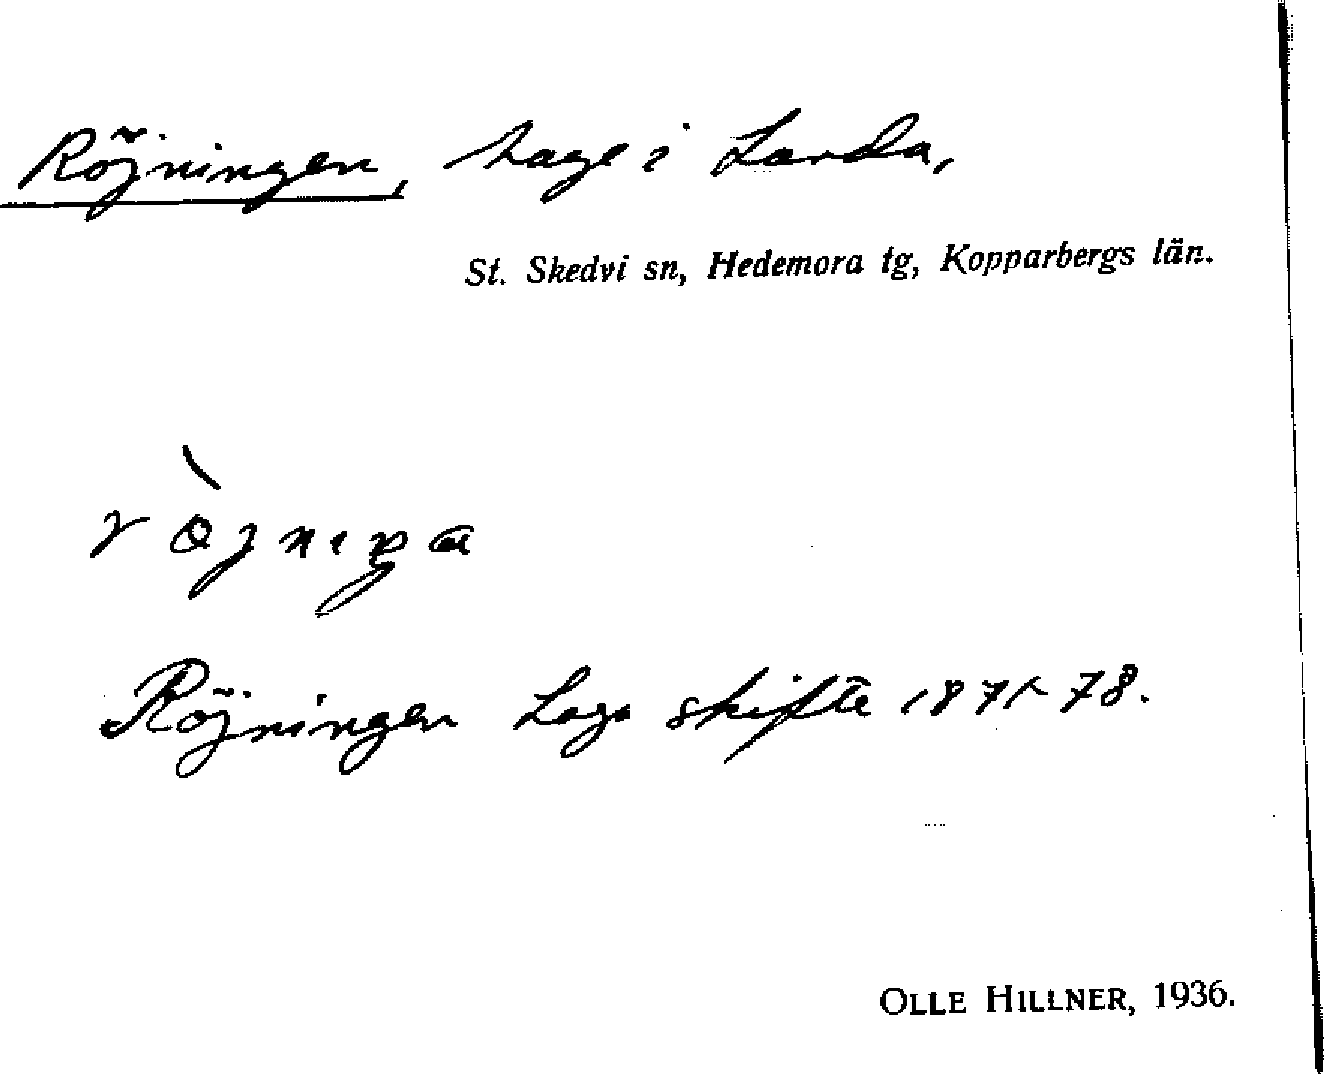 Röjningen, hage i Landa,
St. Skedvi sn, Hedemora tg, Kopparbergs län.
Röjningen Laga skifte 1871-78.
OLLE HILLNER, 1936.